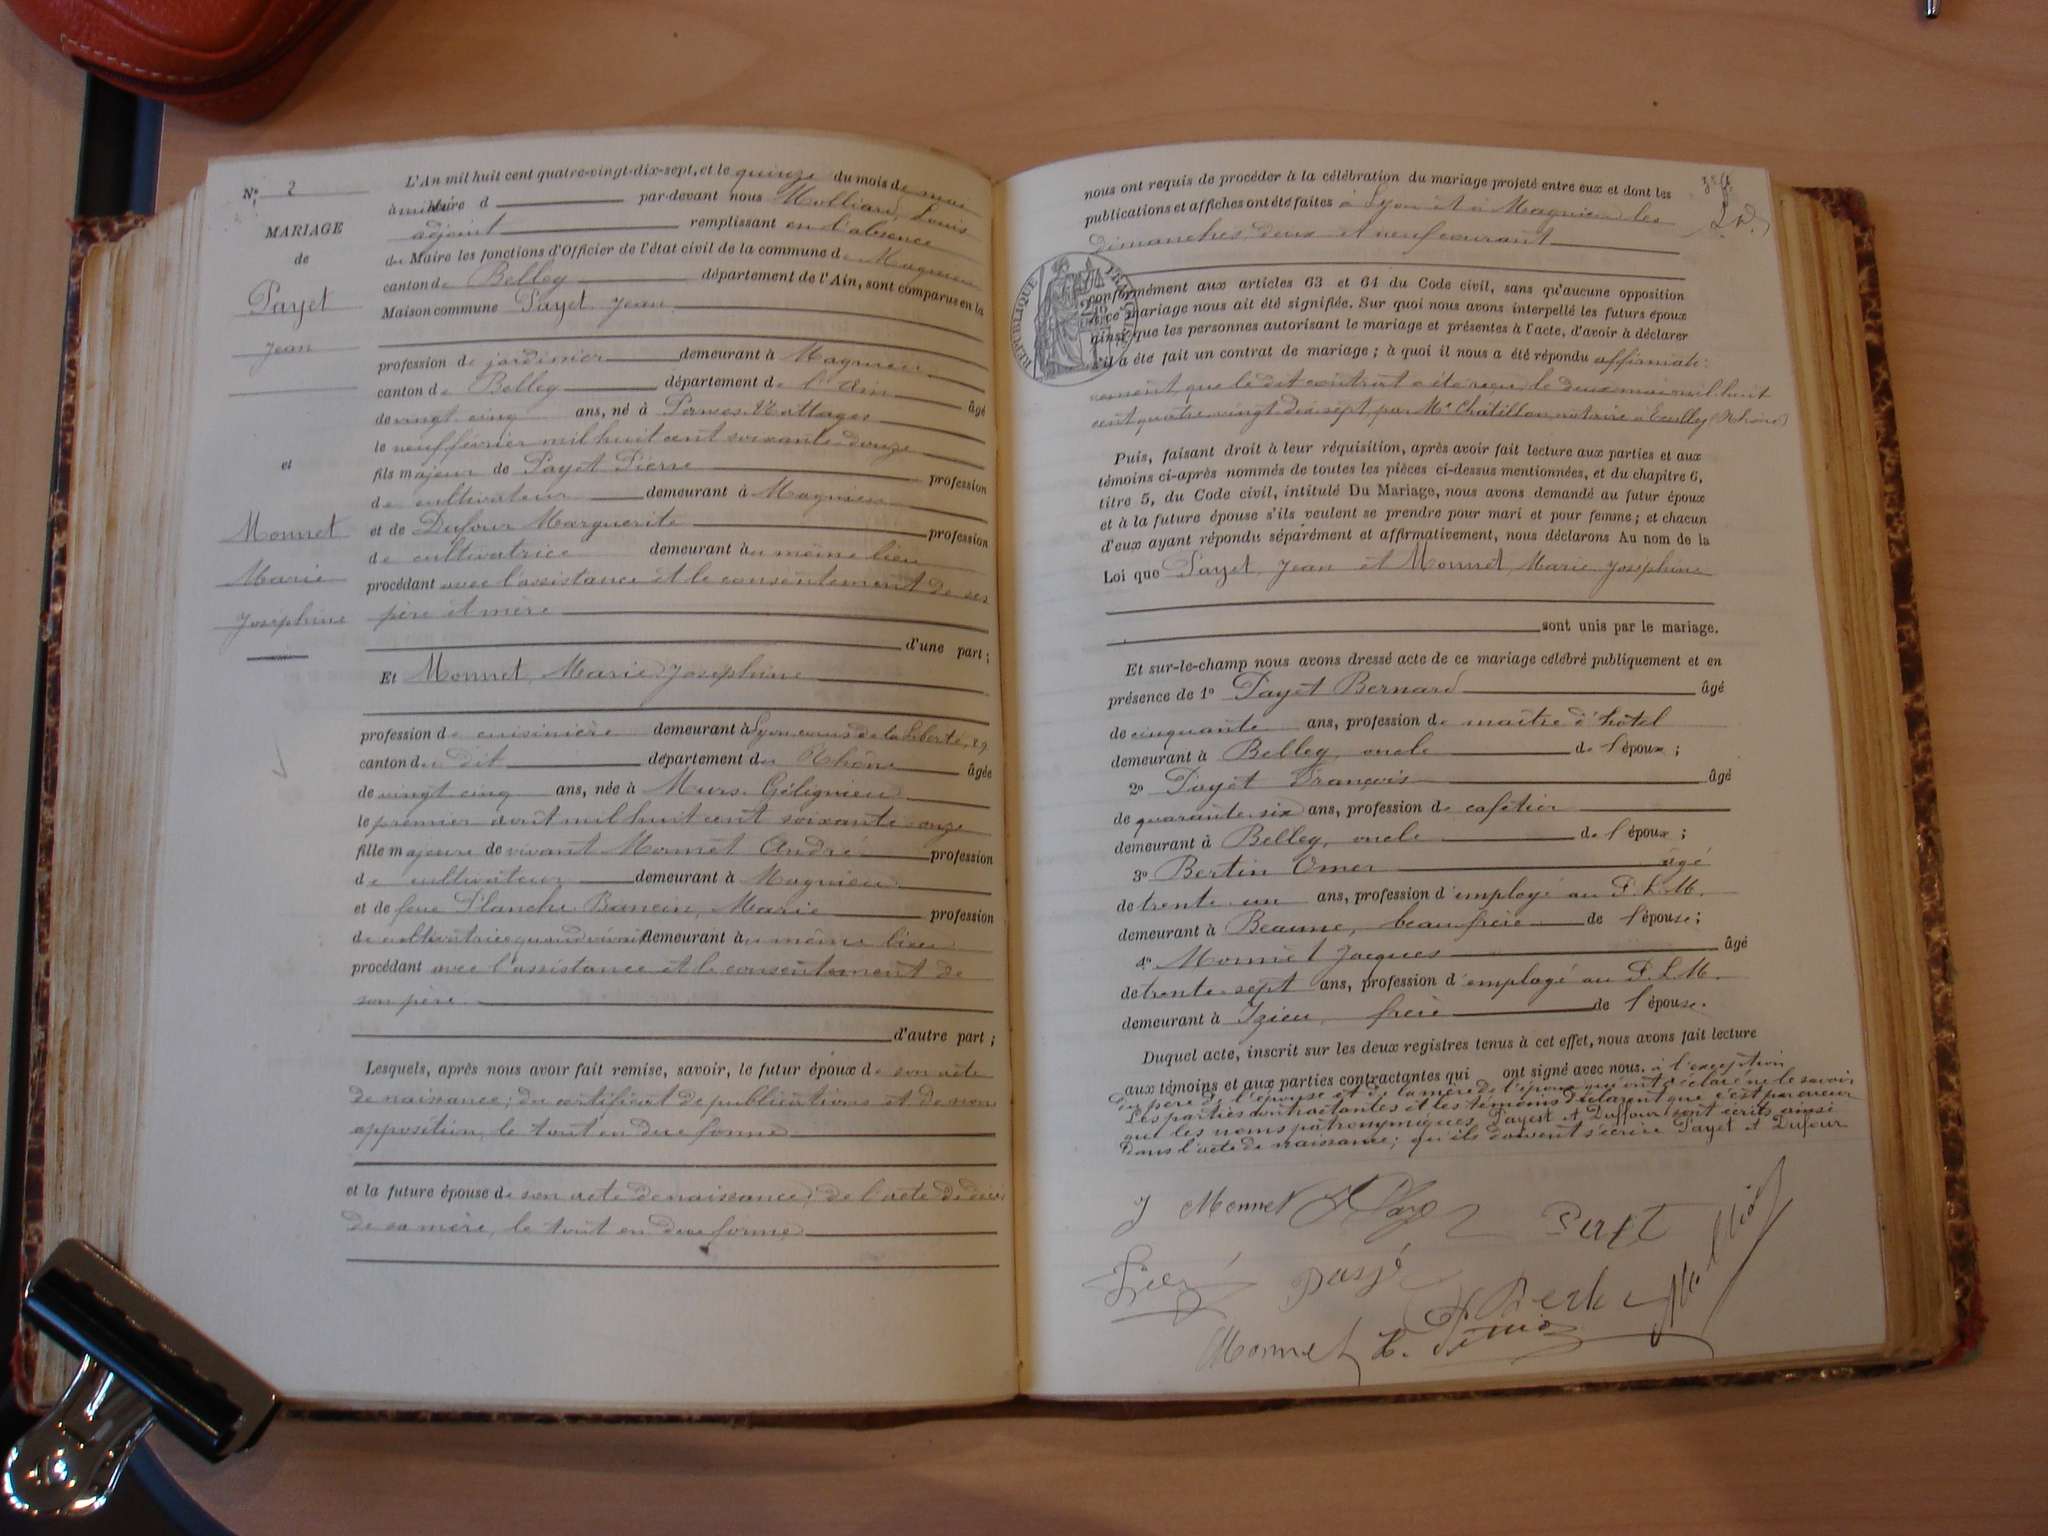 N° 2
MARIAGE
de
Payet
Jean
et
Monnet
Marie
Joséphine
L'An mil huit cent quatre-vingt-dix-sept, et le quinze du mois de mai
à heure d par-devant nous Molliard, Louis
adjoint remplissant en l'absence
du Maire les fonctions d'Officier de l'état civil de la commune de Magnieu
canton de Belley département de l'Ain, sont comparus en la
Maison commune Payet Jean
profession de jardinier demeurant à Magnieu
canton de Belley département de l'Ain âgé
de vingt cinq ans, né à Parves-Nattages
le neuf février mil huit cent soixante-douze
fils majeur de Payet Pierre profession
de cultivateur demeurant à Magnieu
et de Dufour Marguerite profession
de cultivatrice demeurant au même lieu
procédant avec l'assistance et le consentement de ses
père et mère
d'une part;
Et Monnet, Marie Joséphine
profession de cuisinière demeurant à Lyon cours de la Liberté, 29
canton du dit département du Rhône âgée
de vingt cinq ans, née à Murs-Gélignieu
le premier août mil huit cent soixante-onze
fille majeure de vivant Monnet André profession
de cultivateur demeurant à Magnieu
et de feue Planche Bancin, Marie profession
de cultivatrice quand vivait demeurant au même lieu
procédant avec l'assistance et le consentement de
son père
d'autre part;
Lesquels, après nous avoir fait remise, savoir, le futur époux de son acte
de naissance; du certificat de publications et de non
opposition, le tout en due forme
et la future épouse de son acte de naissance, de l'acte de décès
de sa mère, le tout en due forme
nous ont requis de procéder à la célébration du mariage projeté entre eux et dont les
publications et affiches ont été faites à Lyon et à Magnieu les
dimanches, deux et neuf courant
RÉPUBLIQUE FRANÇAISE
conformément aux articles 63 et 64 du Code civil, sans qu'aucune opposition
à ce mariage nous ait été signifiée. Sur quoi nous avons interpellé les futurs époux
ainsi que les personnes autorisant le mariage et présentes à l'acte, d'avoir à déclarer
s'il a été fait un contrat de mariage; à quoi il nous a été répondu affirmati-
vement, que le dit contrat a été reçu, le deux mai mil huit
cent quatre-vingt dix sept, par Me Châtillon, notaire à Ecully (Rhône)
Puis, faisant droit à leur réquisition, après avoir fait lecture aux parties et aux
témoins ci-après nommés de toutes les pièces ci-dessus mentionnées, et du chapitre 6,
titre 5, du Code civil, intitulé Du Mariage, nous avons demandé au futur époux
et à la future épouse s'ils veulent se prendre pour mari et pour femme; et chacun
d'eux ayant répondu séparément et affirmativement, nous déclarons Au nom de la
Loi que Payet, Jean et Monnet, Marie Joséphine
sont unis par le mariage.
Et sur-le-champ nous avons dressé acte de ce mariage célébré publiquement et en
présence de 1° Payet Bernard âgé
de cinquante ans, profession de maître d'hôtel
demeurant à Belley, oncle de l'époux;
2° Payet François âgé
de quarante-six ans, profession de cafetier
demeurant à Belley, oncle de l'époux;
3° Bertin Omer âgé
de trente un ans, profession d'employé au P.L.M.
demeurant à Beaune, beau-frère de l'épouse;
4° Monnet Jacques âgé
de trente-sept ans, profession d'employé au P.L.M.
demeurant à Izieu, frère de l'épouse.
Duquel acte, inscrit sur les deux registres tenus à cet effet, nous avons fait lecture
aux témoins et aux parties contractantes qui ont signé avec nous. à l'exception
du père de l'épouse et de la mère de l'époux qui ont déclaré ne le savoir
Les parties contractantes et les témoins déclarent que c'est par erreur
que les noms patronymiques Payest et Duffour sont écrits ainsi
dans l'acte de naissance; qu'ils doivent s'écrire Payet et Dufour
J Monnet
Monnet